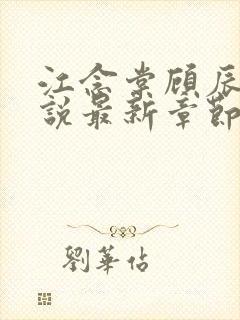 江念棠顾辰
說最新章節
劉華佔